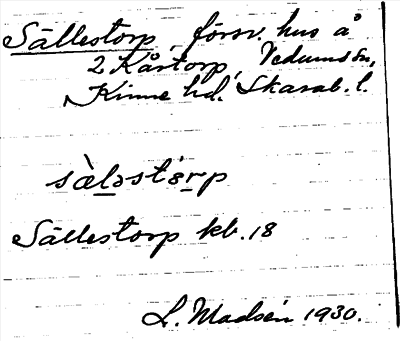 Sällestorp, försv. hus å
2 Kårtorp, Vedums sn,
Kinne hd. Skarab. l.
sàləstərp
Sällestorp kb. 18
L. Madsén 1930.